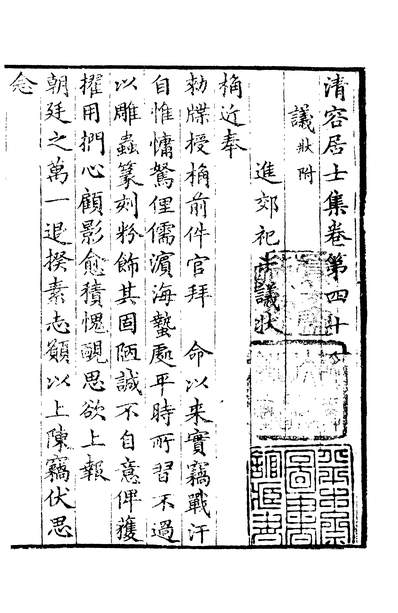 清容居士集卷第四十
議狀附
進郊祀十議狀
桷近奉
勑牒授桷前件官拜　命以來實竊戰汗
自惟慵駑俚儒濵海蟄處平時所習不過
以雕蟲篆刻粉飾其固陋誠不自意俾獲
擢用捫心顧影愈積愧靦思欲上報
朝廷之萬一退揆素志願以上陳竊伏思
念